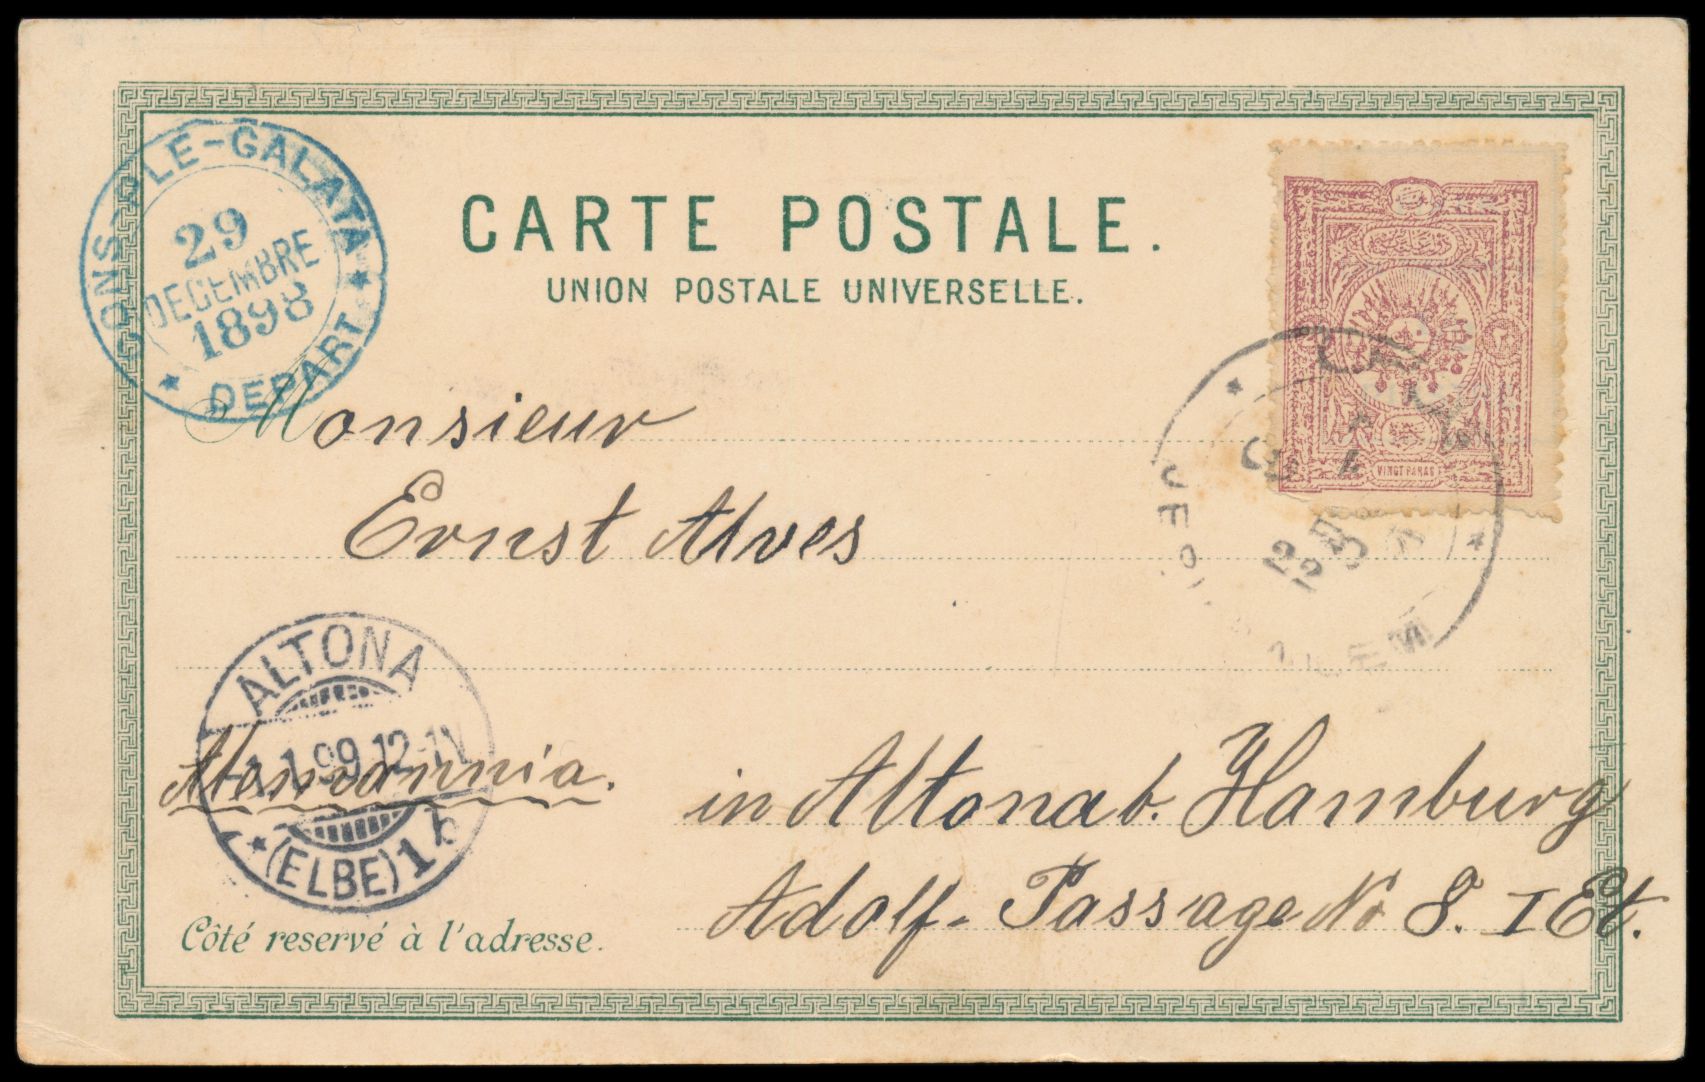 CARTE POSTALE.
UNION POSTALE UNIVERSELLE.
CONS-PLE-GALATA
29
DECEMBRE
1898
DEPART
VINGT PARAS
Monsieur
Ernst Alves
ALTONA
1.1.99.12-1N
(ELBE) 1 b
Alemannia.
in Altona b. Hamburg
Adolf-Passage No 8. I Et.
Côté reservé à l'adresse.